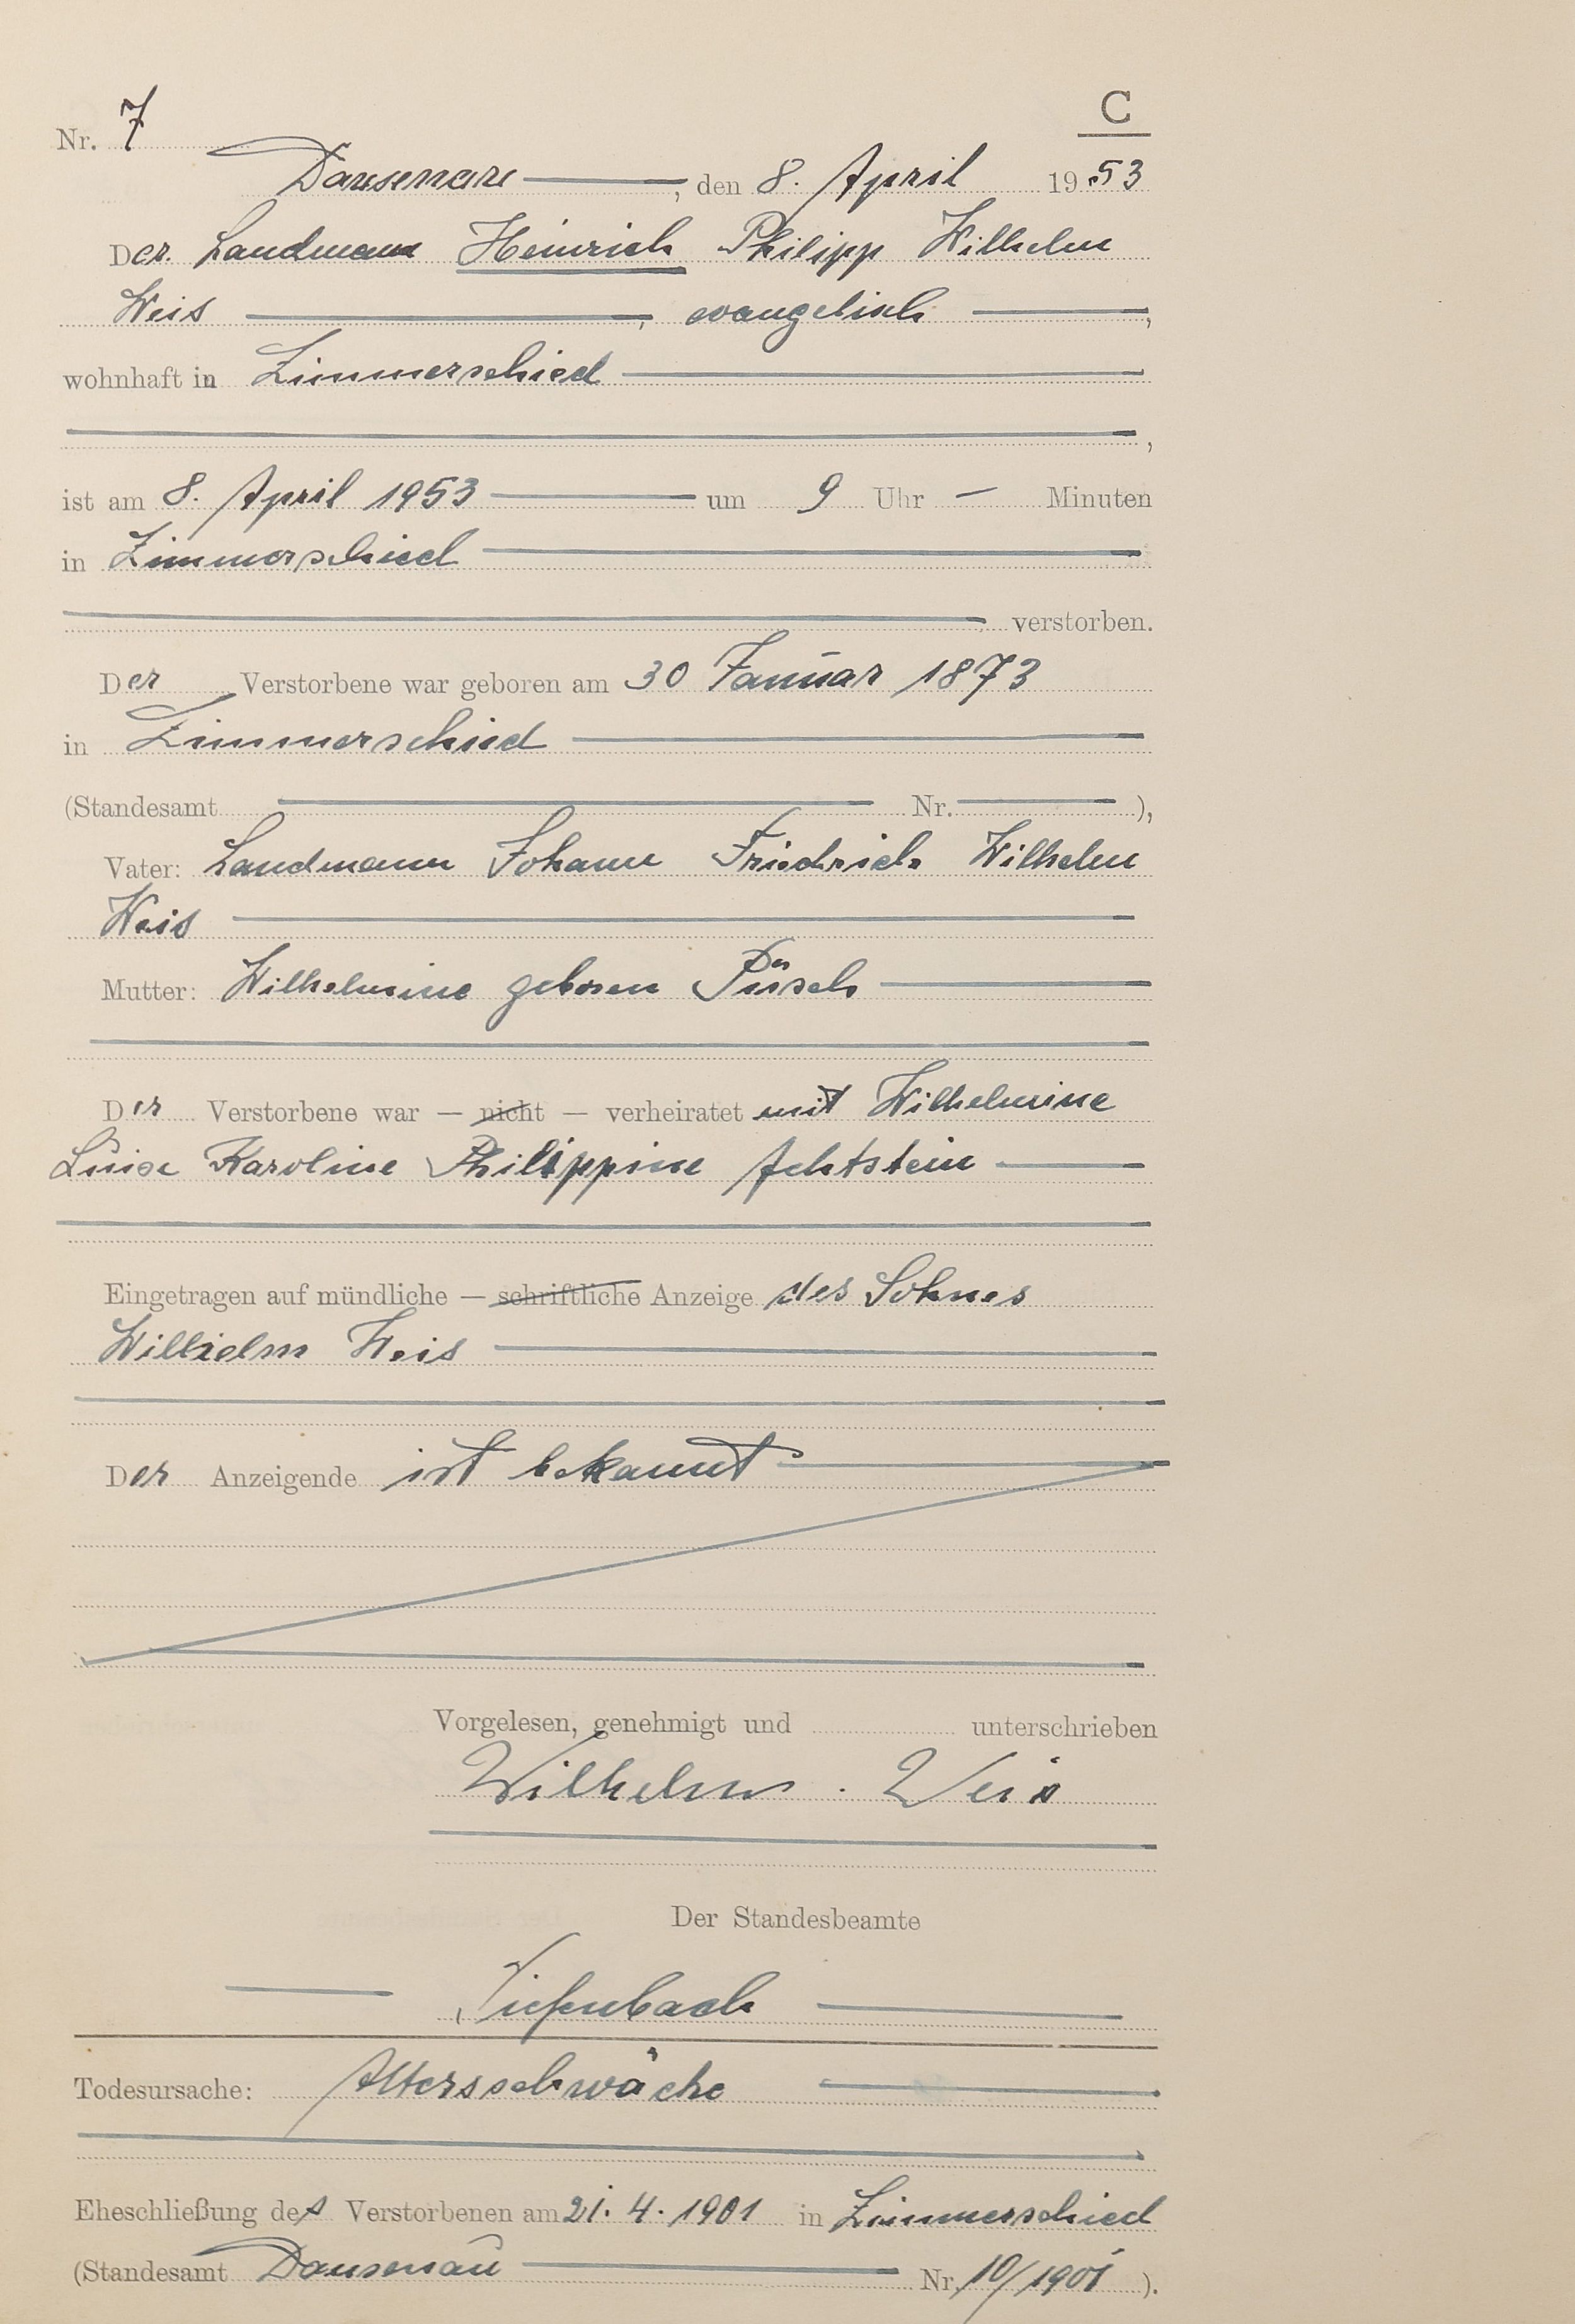 C
Nr. 7
Dausenau, den 8. April 1953
Der Landmann Heinrich Philipp Wilhelm
Weis, evangelisch,
wohnhaft in Zimmerschied
,
ist am 8. April 1953 um 9 Uhr — Minuten
in Zimmerschied
verstorben.
Der Verstorbene war geboren am 30 Januar 1873
in Zimmerschied
(Standesamt Nr. ),
Vater: Landmann Johann Friedrich Wilhelm
Weis
Mutter: Wilhelmine geboren
Der Verstorbene war — nicht — verheiratet mit Wilhelmine
Luise Karoline Philippine Achtstein
Eingetragen auf mündliche — schriftliche Anzeige des Sohnes
Wilhelm Weis
Der Anzeigende ist bekannt
Vorgelesen, genehmigt und unterschrieben
Wilhelm. Weis
Der Standesbeamte
Tiefenbach
Todesursache: Altersschwäche
Eheschließung des Verstorbenen am 21. 4. 1901 in Zimmerschied
(Standesamt Dausenau Nr. 10/1901 ).